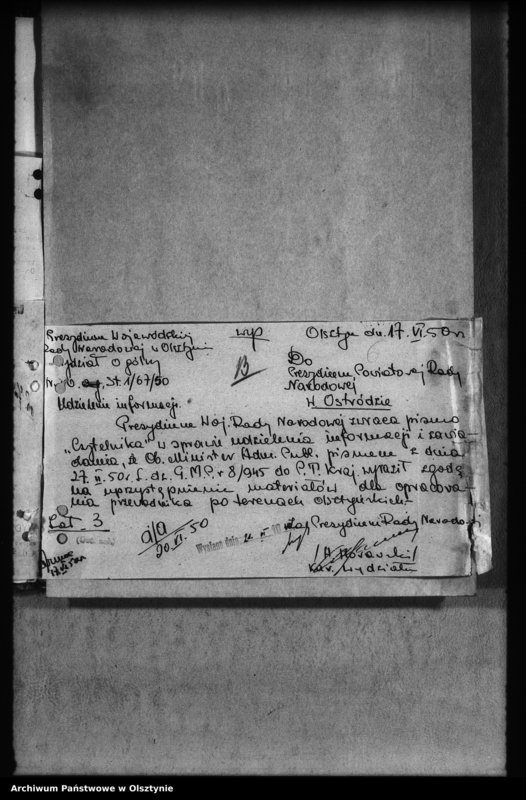 Prezydium Wojewódzkiej
Rady Narodowej w Olsztynie
Wydział Ogólny
St. 1/67/50
Udzielenie informacji.
Olsztyn dn. 17. VI. 50 r.
Do
Prezydium Powiatowej Rady
Narodowej
w Ostródzie
Prezydium Woj. Rady Narodowej zwraca pismo
"Czytelnika" w sprawie udzielenia informacji i zawia-
damia, że Ob. Minister Adm. Publ. pismem z dnia
27. II. 50 r. L. dz. G. M. 8/945 do P. T. Kraj. wyraził zgodę
na uprzystępnienie materiałów dla opracowa-
nia przewodnika po terenach olsztyńskich.
Zał. 3
a/a
20. VI. 50
Wysłano dnia
Prezydium Rady Narodowej
Kier. Wydziału
17 VI 50
Archiwum Państwowe w Olsztynie